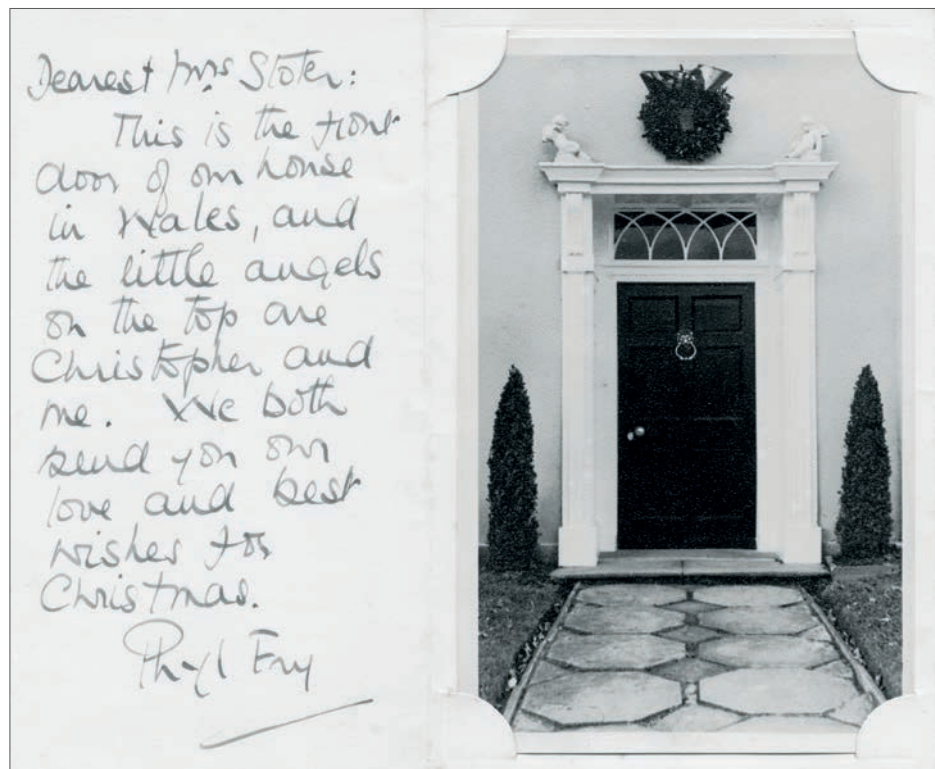 Dearest Mrs Stoter:
This is the front
door of our house
in Wales, and
the little angels
on the top are
Christopher and
me. We both
send you our
love and best
wishes for
Christmas.
Phyl Fry